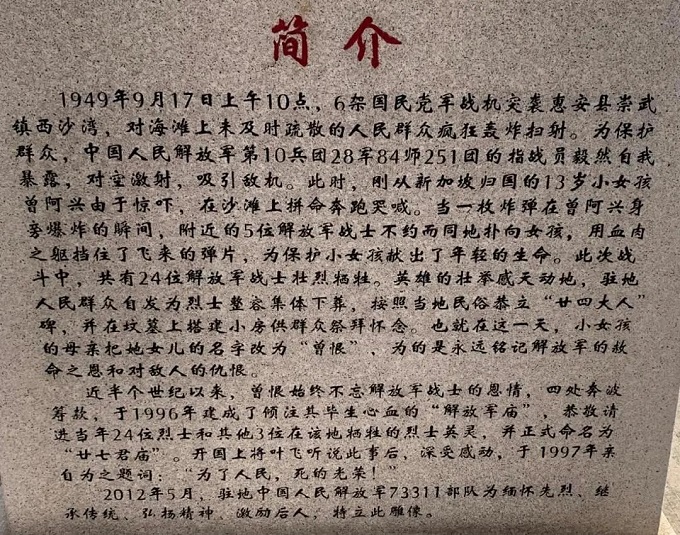 简介
1949年9月17日上午10点，6架国民党军战机突袭惠安县崇武
镇西沙湾，对海滩上未及时疏散的人民群众疯狂轰炸扫射。为保护
群众，中国人民解放军第10兵团28军84师251团的指战员毅然自我
暴露，对空激射，吸引敌机。此时，刚从新加坡归国的13岁小女孩
曾阿兴由于惊吓，在沙滩上拼命奔跑哭喊。当一枚炸弹在曾阿兴身
旁爆炸的瞬间，附近的5位解放军战士不约而同地扑向女孩，用血肉
之躯挡住了飞来的弹片，为保护小女孩献出了年轻的生命。此次战
斗中，共有24位解放军战士壮烈牺牲。英雄的壮举感天动地，驻地
人民群众自发为烈士整容集体下葬，按照当地民俗恭立“廿四大人”
碑，并在坟墓上搭建小房供群众祭拜怀念。也就在这一天，小女孩
的母亲把她女儿的名字改为“曾恨”，为的是永远铭记解放军的救
命之恩和对敌人的仇恨。
近半个世纪以来，曾恨始终不忘解放军战士的恩情，四处奔波
筹款，于1996年建成了倾注其毕生心血的“解放军庙”，恭敬请
进当年24位烈士和其他3位在该地牺牲的烈士英灵，并正式命名为
“廿七君庙”。开国上将叶飞听说此事后，深受感动，于1997年亲
自为之题词：“为了人民，死的光荣！”
2012年5月，驻地中国人民解放军73311部队为缅怀先烈、继
承传统、弘扬精神、激励后人，特立此雕像。